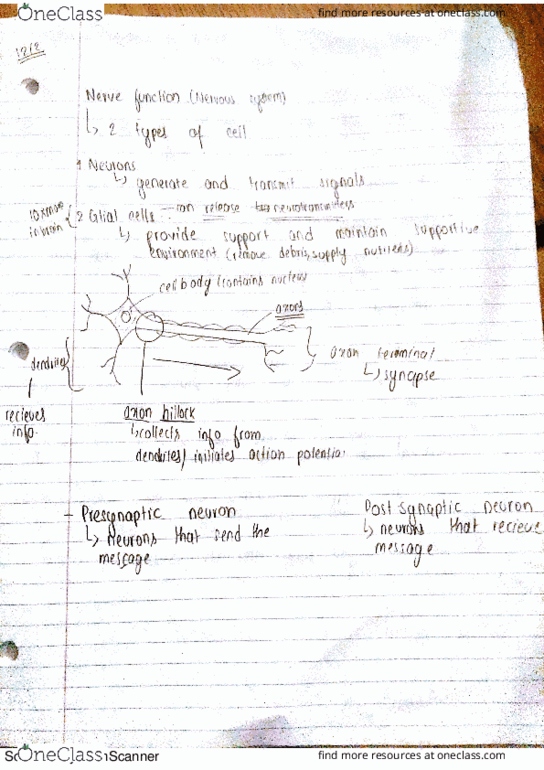 OneClass
find more resources at oneclass.com
12/2
Nerve function (Nervous system)
↳ 2 types of cell
1 Neurons
↳ generate and transmit signals
10x more in brain
2 Glial cells - can release neurotransmitters
↳ provide support and maintain supportive
environment (remove debris, supply nutrients)
cell body (contains nucleus
axons
dendrites
axon terminal
↳ synapse
recieves
info.
axon hillock
↳ collects info from
dendrites / initiates action potential
- Presynaptic neuron
↳ Neurons that send the
message
Post synaptic neuron
↳ neurons that recieve
message
OneClass
Scanner
find more resources at oneclass.com